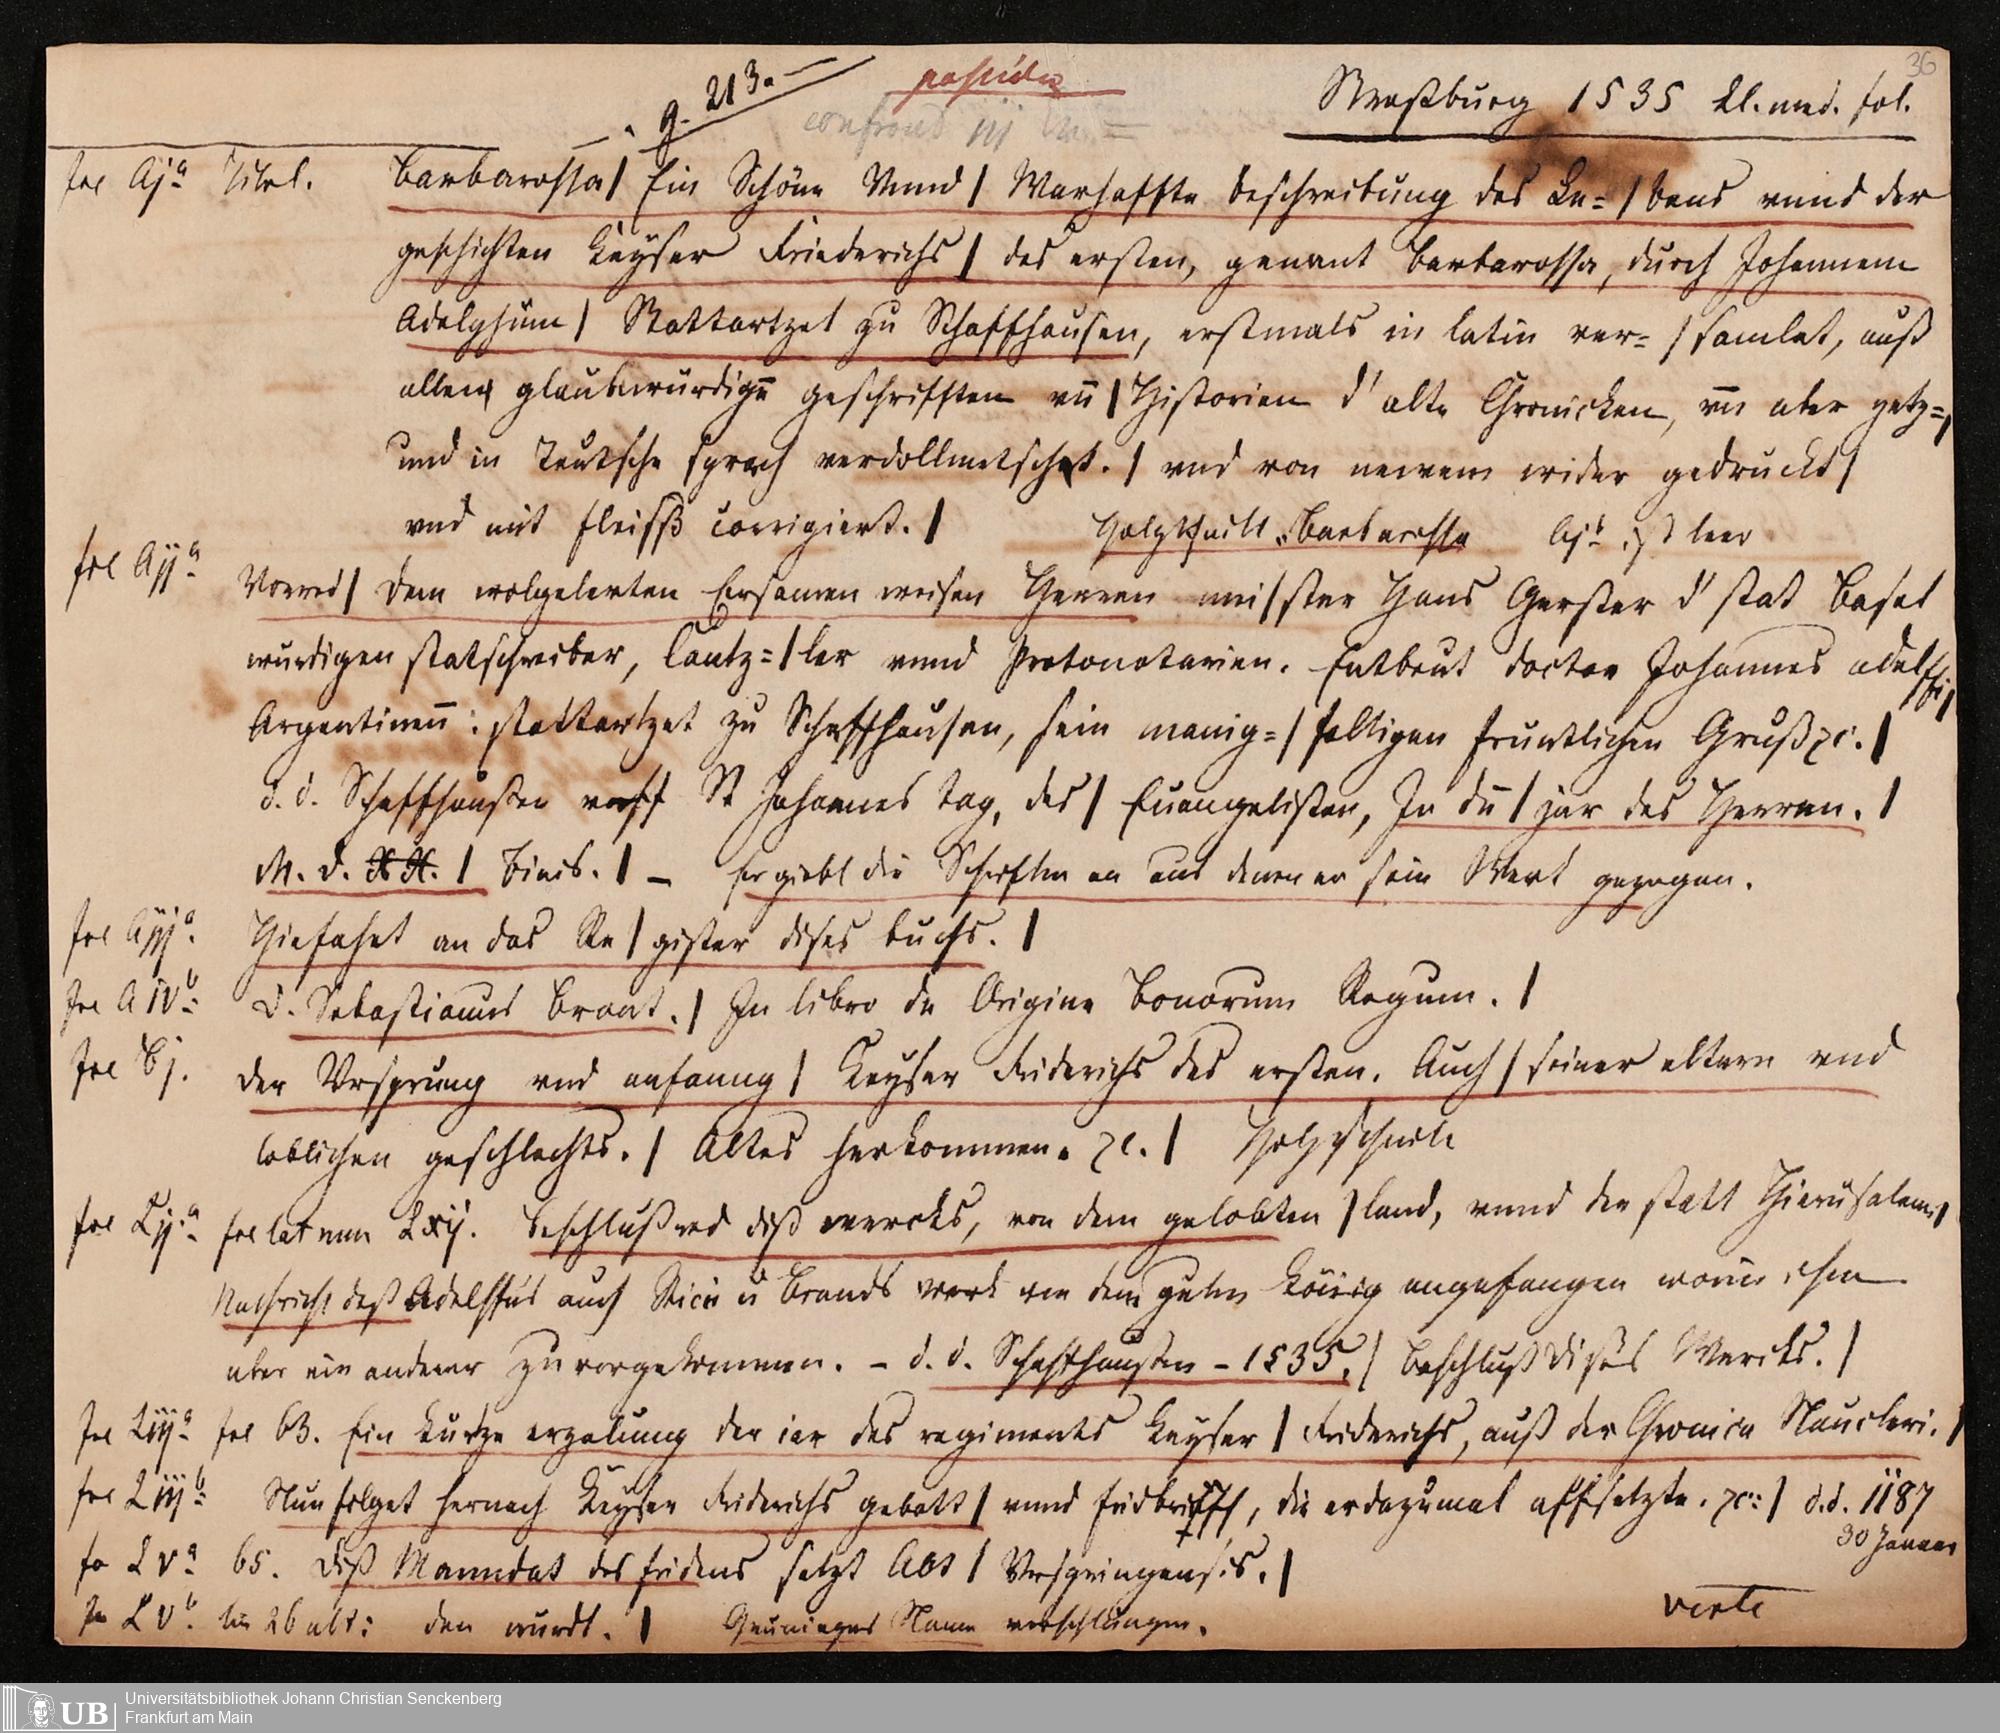 36
g. 213.
possideo
Straßburg 1535 kl. med. fol.
confront iij
fol Aj a Titel. Barbarossa | Ein Schöne Vnnd | Warhaffte beschreibung des Le= | bens vnnd der
geschichten Keyser Friederichs | des ersten, genant Barbarossa, durch Johannem
Adelphum | Stattartzet zu Schaffhausen, erstmals in latin ver= | samlet, auß
allen glaubwürdigē geschrifften vñ | Historien d' alte Chronicken, vñ aber yetz= |
und in Teutsche sprach verdollmetschet. | vnd von newem wider gedruckt |
vnd mit fleissz corrigiert. | Holzschnitt Barbarossa Aj b ist leer
fol Aij a
Vorred | Dem wolgelerten Ersamen weisen Herren mei | ster Hans Gerster d' stat Basel
würdigen statschreiber, Cantz= | ler vnnd Protonotarien. Entbeut doctor Johannes adelffi |
Argentineñ: stattartzet zu Schaffhausen, sein manig= | faltigen fruntlichen Gruß ꝛc. |
d. d. Schaffhaußen vff St Johannes tag, des | Euangelisten, In dē | jar des Herren. |
M. D. XX. | Finis. | — Er giebt die Schriften an aus denen er sein Werk gezogen.
fol Aiij a. Hiefahet an das Re | gister dises buchs. |
fol A iv b D. Sebastianus Brant. | In libro de Origine bonorum Regum. |
fol Bj. Der Vrsprung vnd anfanng | Keyser Friderichs des ersten. Auch | seiner eltern vnd
loblichen geschlechts. | Altes herkommen. ꝛc. | Holzschnitt
fol Lij a fol lat num Lxij. Beschlußred diß wercks, von dem gelobten | land, vnnd der statt Hierusalem |
Nachricht daß Adelffus auch Brands werk von dem guten König angefangen worin ihm
aber ein anderer zuvorgekommen. – d. d. Schaffhaußen – 1535. | Beschluß dises Wercks. |
fol Liij a fol 63. Ein kurtze erzelung der iar des regiments Keyser | Friderichs, auß der Chronica Naucleri. |
fol Liij b Nun folget hernach Keyser Friderichs gebott | vnnd fridbrieff, die er dazumal uffsetzte. ꝛc: | d. d. 1187
30 Januar
fo L v a 65. Diß Manndat des fridens setzt Abt | Vrspringensis. |
fo L v b. lin 26 ult: den wurdt. | Gruningers Name verschlungen.
verte
Universitätsbibliothek Johann Christian Senckenberg
Frankfurt am Main
UB